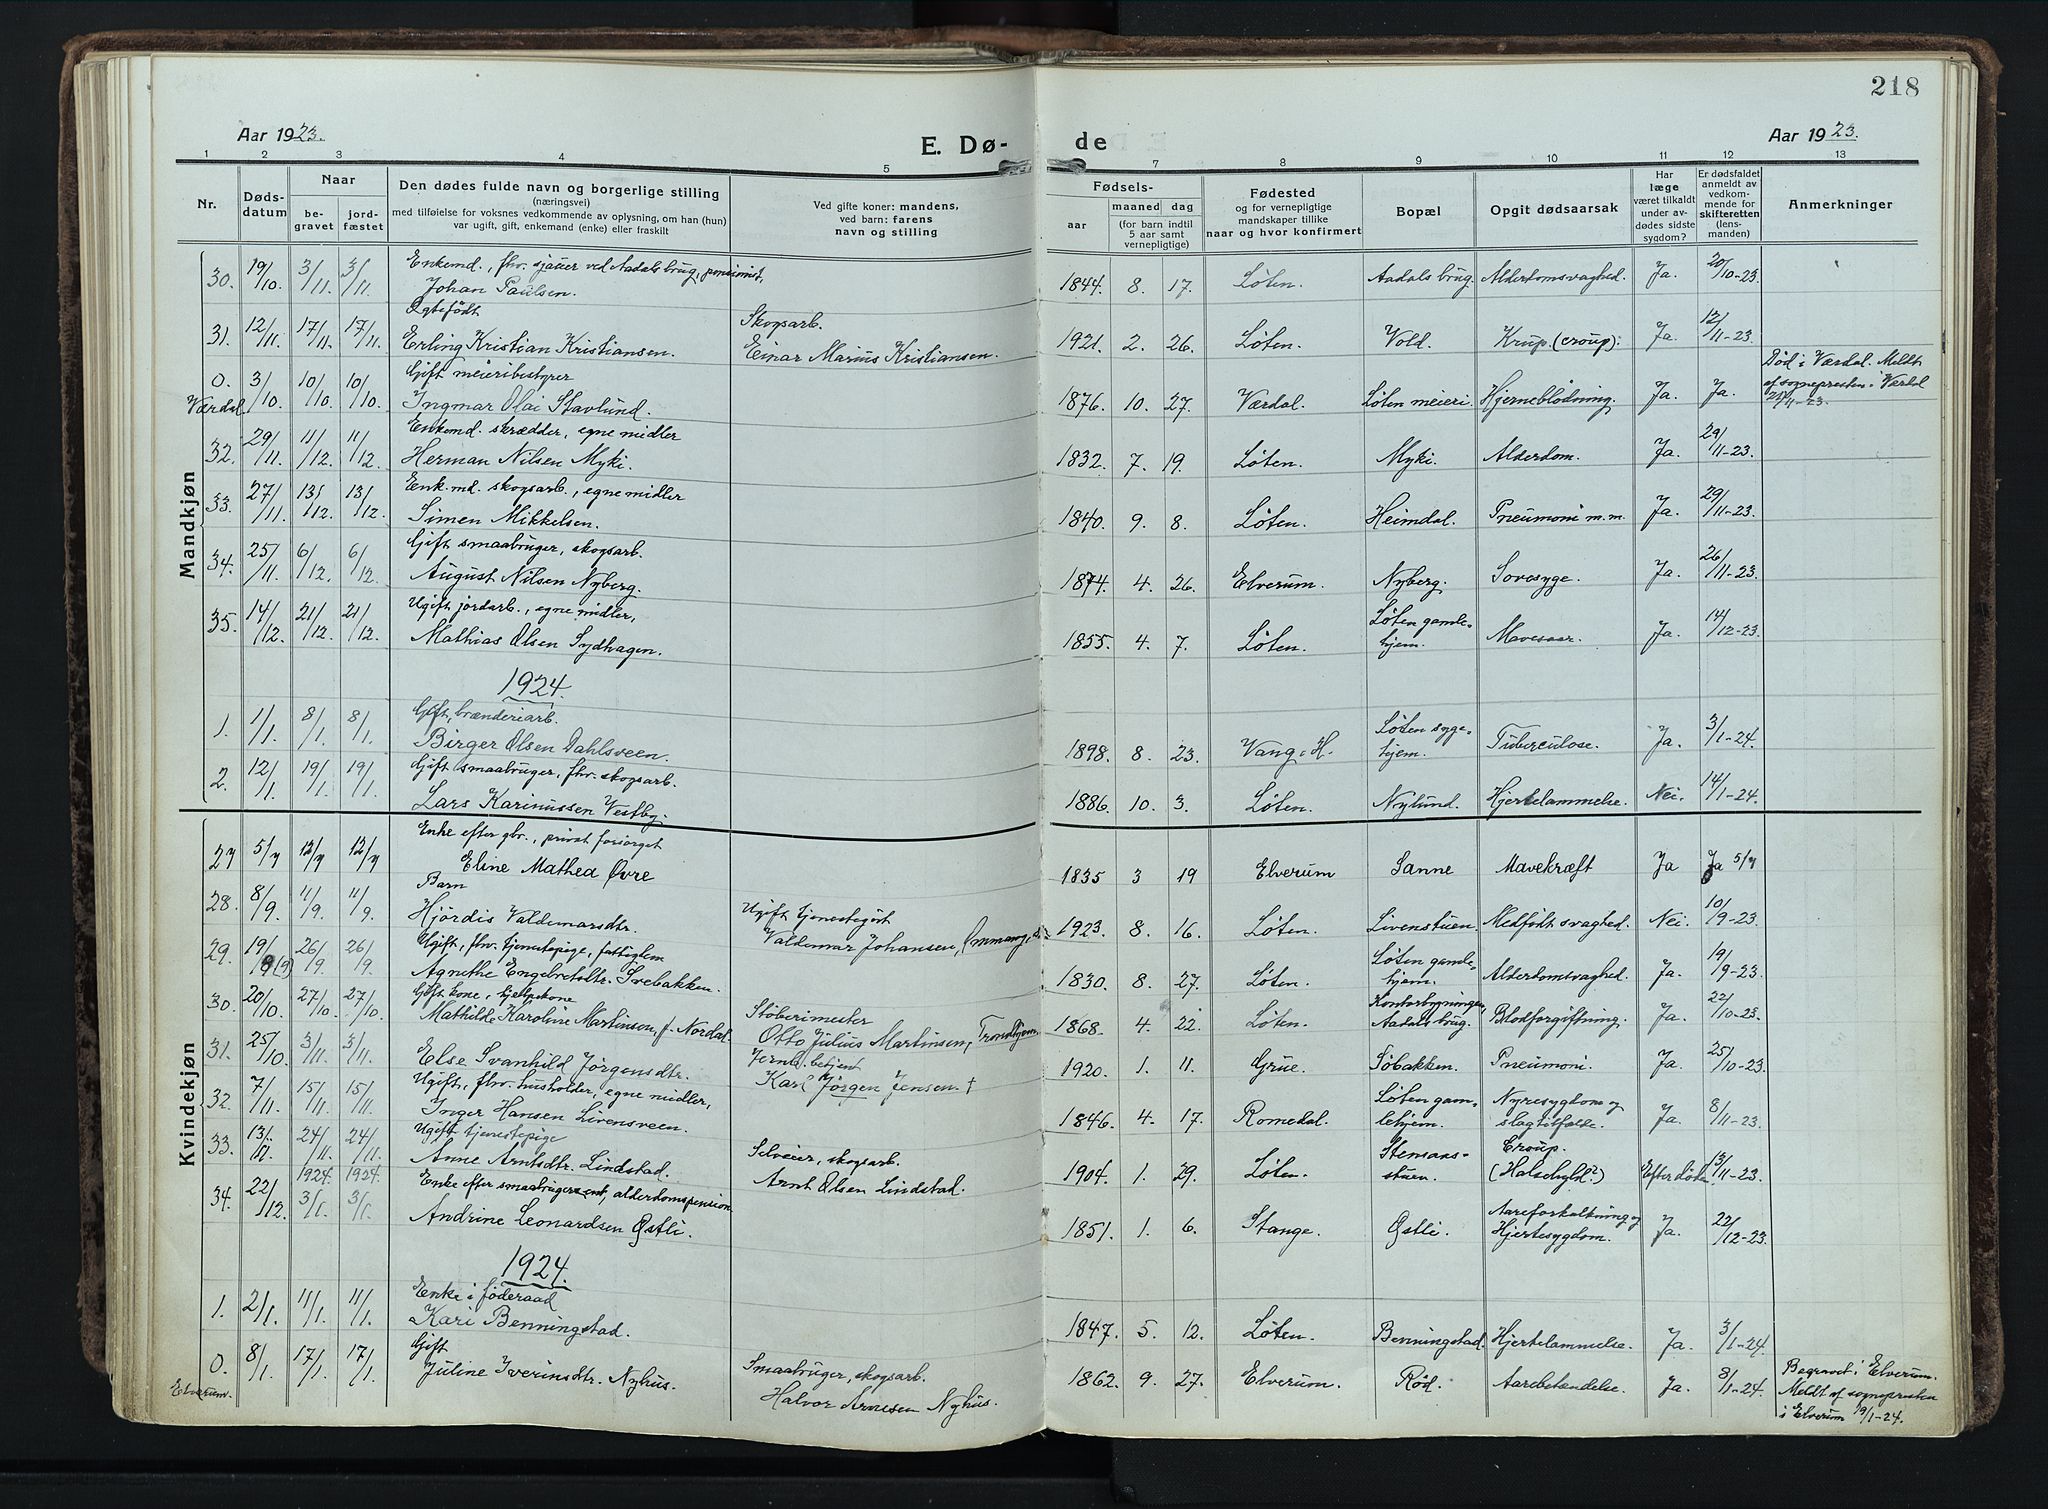 218
Aar 1923.
E. Dø- de
Aar 1923.
1 2 3 4 5 7 8 9 10 11 12 13
Nr.
Døds-
datum
Naar
be-
gravet
jord-
fæstet
Den dødes fulde navn og borgerlige stilling
(næringsvei)
med tilføielse for voksnes vedkommende av oplysning, om han (hun)
var ugift, gift, enkemand (enke) eller fraskilt
Ved gifte koner: mandens,
ved barn: farens
navn og stilling
Fødsels-
aar
maaned dag
(for barn indtil
5 aar samt
vernepligtige)
Fødested
og for vernepligtige
mandskaper tillike
naar og hvor konfirmert
Bopæl
Opgit dødsaarsak
Har
læge
været tilkaldt
under av-
dødes sidste
sygdom?
Er dødsfaldet
anmeldt av
vedkom-
mende for
skifteretten
(lens-
manden)
Anmerkninger
Mandkjøn
30. 19/10. 3/11. 3/11. Enkemd., fhv. sjauer ved Aadals brug, pensionist,
Johan Paulsen. 1844. 8. 17. Løten. Aadals brug. Alderdomsvaghed. Ja. 20/10-23.
31. 12/11. 17/11. 17/11. Egtefødt Skogsarb.
Erling Kristian Kristiansen. Einar Marius Kristiansen. 1921. 2. 26. Løten. Vold. Krup. (croup). Ja. 12/11-23.
0. Værdal 3/10. 10/10. 10/10. Gift meieribestyrer
Ingmar Olai Stavlund. 1876. 10. 27. Værdal. Løten meieri. Hjerneblødning. Ja. Ja. Død i Værdal. Meldt
af sognepresten i Værdal
32. 29/11. 11/12. 11/12. Enkemd. skrædder, egne midler
Herman Nilsen Myki. 1832. 7. 19. Løten. Myki. Alderdom. Ja. 29/11-23.
33. 27/11. 13/12. 13/12. Enk.md. skogsarb., egne midler
Simen Mikkelsen. 1840. 9. 8. Løten. Heimdal. Pneumoni m.m. Ja. 29/11-23.
34. 25/11. 6/12. 6/12. Gift smaabruger, skogsarb.
August Nilsen Nyberg. 1874. 4. 26. Elverum. Nyberg. Sovesyge. Ja. 26/11-23.
35. 14/12. 21/12. 21/12. Ugift jordarb., egne midler,
Mathias Olsen Sydhagen. 1855. 4. 7. Løten. Løten gamle-
hjem. Mavesaar. Ja. 14/12-23.
1924.
1. 1/1. 8/1. 8/1. Gift, brænderiarb.
Birger Olsen Dahlsveen. 1898. 8. 23. Vang, H. Løten syge-
hjem. Tuberculose. Ja. 3/1-24.
2. 12/1. 19/1. 19/1. Gift smaabruger, fhv. skogsarb.
Lars Karinussen Vestby. 1886. 10. 3. Løten. Nylund. Hjertelammelse. Nei. 14/1-24.
Kvindekjøn
27 5/7 12/7 12/7 Enke efter gbr., privat forsørget
Eline Mathea Øvre 1835 3 19 Elverum Sanne Mavekræft Ja Ja 5/7
28. 8/9. 11/9. 11/9. Barn Ugift tjenestegört
Hjördis Valdemarsdtr. Valdemar Johansen, Ommang, 1923. 8. 16. Løten. Livenstuen. Medfødt svaghed. Nei. 10/9-23.
29. 19/9 26/9. 26/9. Ugift, fhv. tjenestepige, fattiglem
Agnethe Engebretsdtr. Svebakken. 1830. 8. 27. Løten. Løten gamle-
hjem. Alderdomsvaghed. Ja. 19/9-23.
30. 20/10. 27/10. 27/10. Gift kone, hjelpekone Støberimester
Mathilde Karoline Martinson, f. Nordal. Otto Julius Martinsen, Trondhjem. 1868. 4. 22. Løten. Kontorbygningen,
Aadals brug. Blodforgiftning. Ja. 22/10-23.
31. 25/10. 3/11. 3/11. Jernb. betjent
Else Svanhild Jørgensdtr. Karl Jørgen Jensen. † 1920. 1. 11. Grue. Søbakken. Pneumoni. Ja. 25/10-23.
32. 7/11. 15/11. 15/11. Ugift, fhv. husholder, egne midler,
Inger Hansen Livensveen. 1846. 4. 17. Romedal. Løten gam-
lehjem. Nyresygdom og
slagtilfælde. Ja. 8/11-23.
33. 13/11. 24/11. 24/11. Ugift tjenestepige Selveier, skogsarb.
Anne Arntsdtr. Lindstad. Arnt Olsen Lindstad. 1904. 1. 29. Løten. Stensaas-
stuen. Croup.
(Halsebyld?) Efter døden. 13/11-23.
34. 22/12. 1924. 3/1. 1924. 3/1. Enke efter smaabruger, alderdomspension
Andrine Leonardsen Østli. 1851. 1. 6. Stange. Østli. Aareforkalkning og
Hjertesygdom. Ja. 22/12-23.
1924.
1. 2/1. 11/1. 11/1. Enke i føderaad
Kari Benningstad. 1847. 5. 12. Løten. Benningstad. Hjertelammelse. Ja. 3/1-24.
0. Elverum. 8/1. 17/1. 17/1. Gift Smaabruger, skogsarb.
Juline Iverinsdtr. Nyhus. Halvor Arnesen Nyhus. 1862. 9. 27. Elverum. Rød. Aarebetændelse. Ja. 8/1-24. Begravet i Elverum.
Meldt af sognepresten
i Elverum 19/1-24.